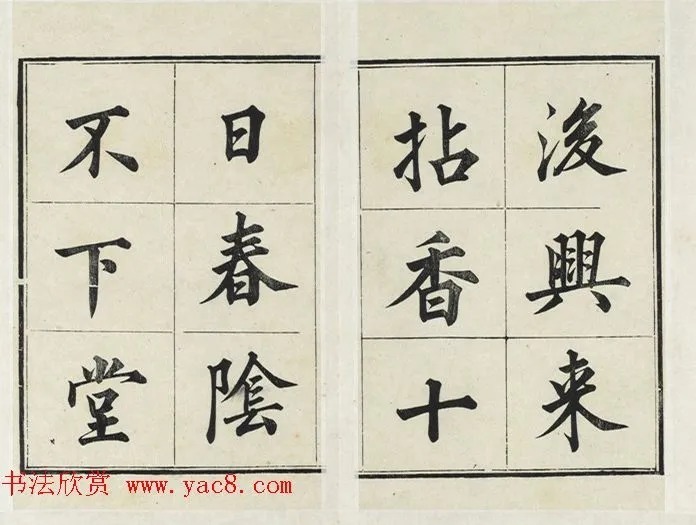 後興来
拈香十
日春隂
不下堂
书法欣赏 www.yac8.com